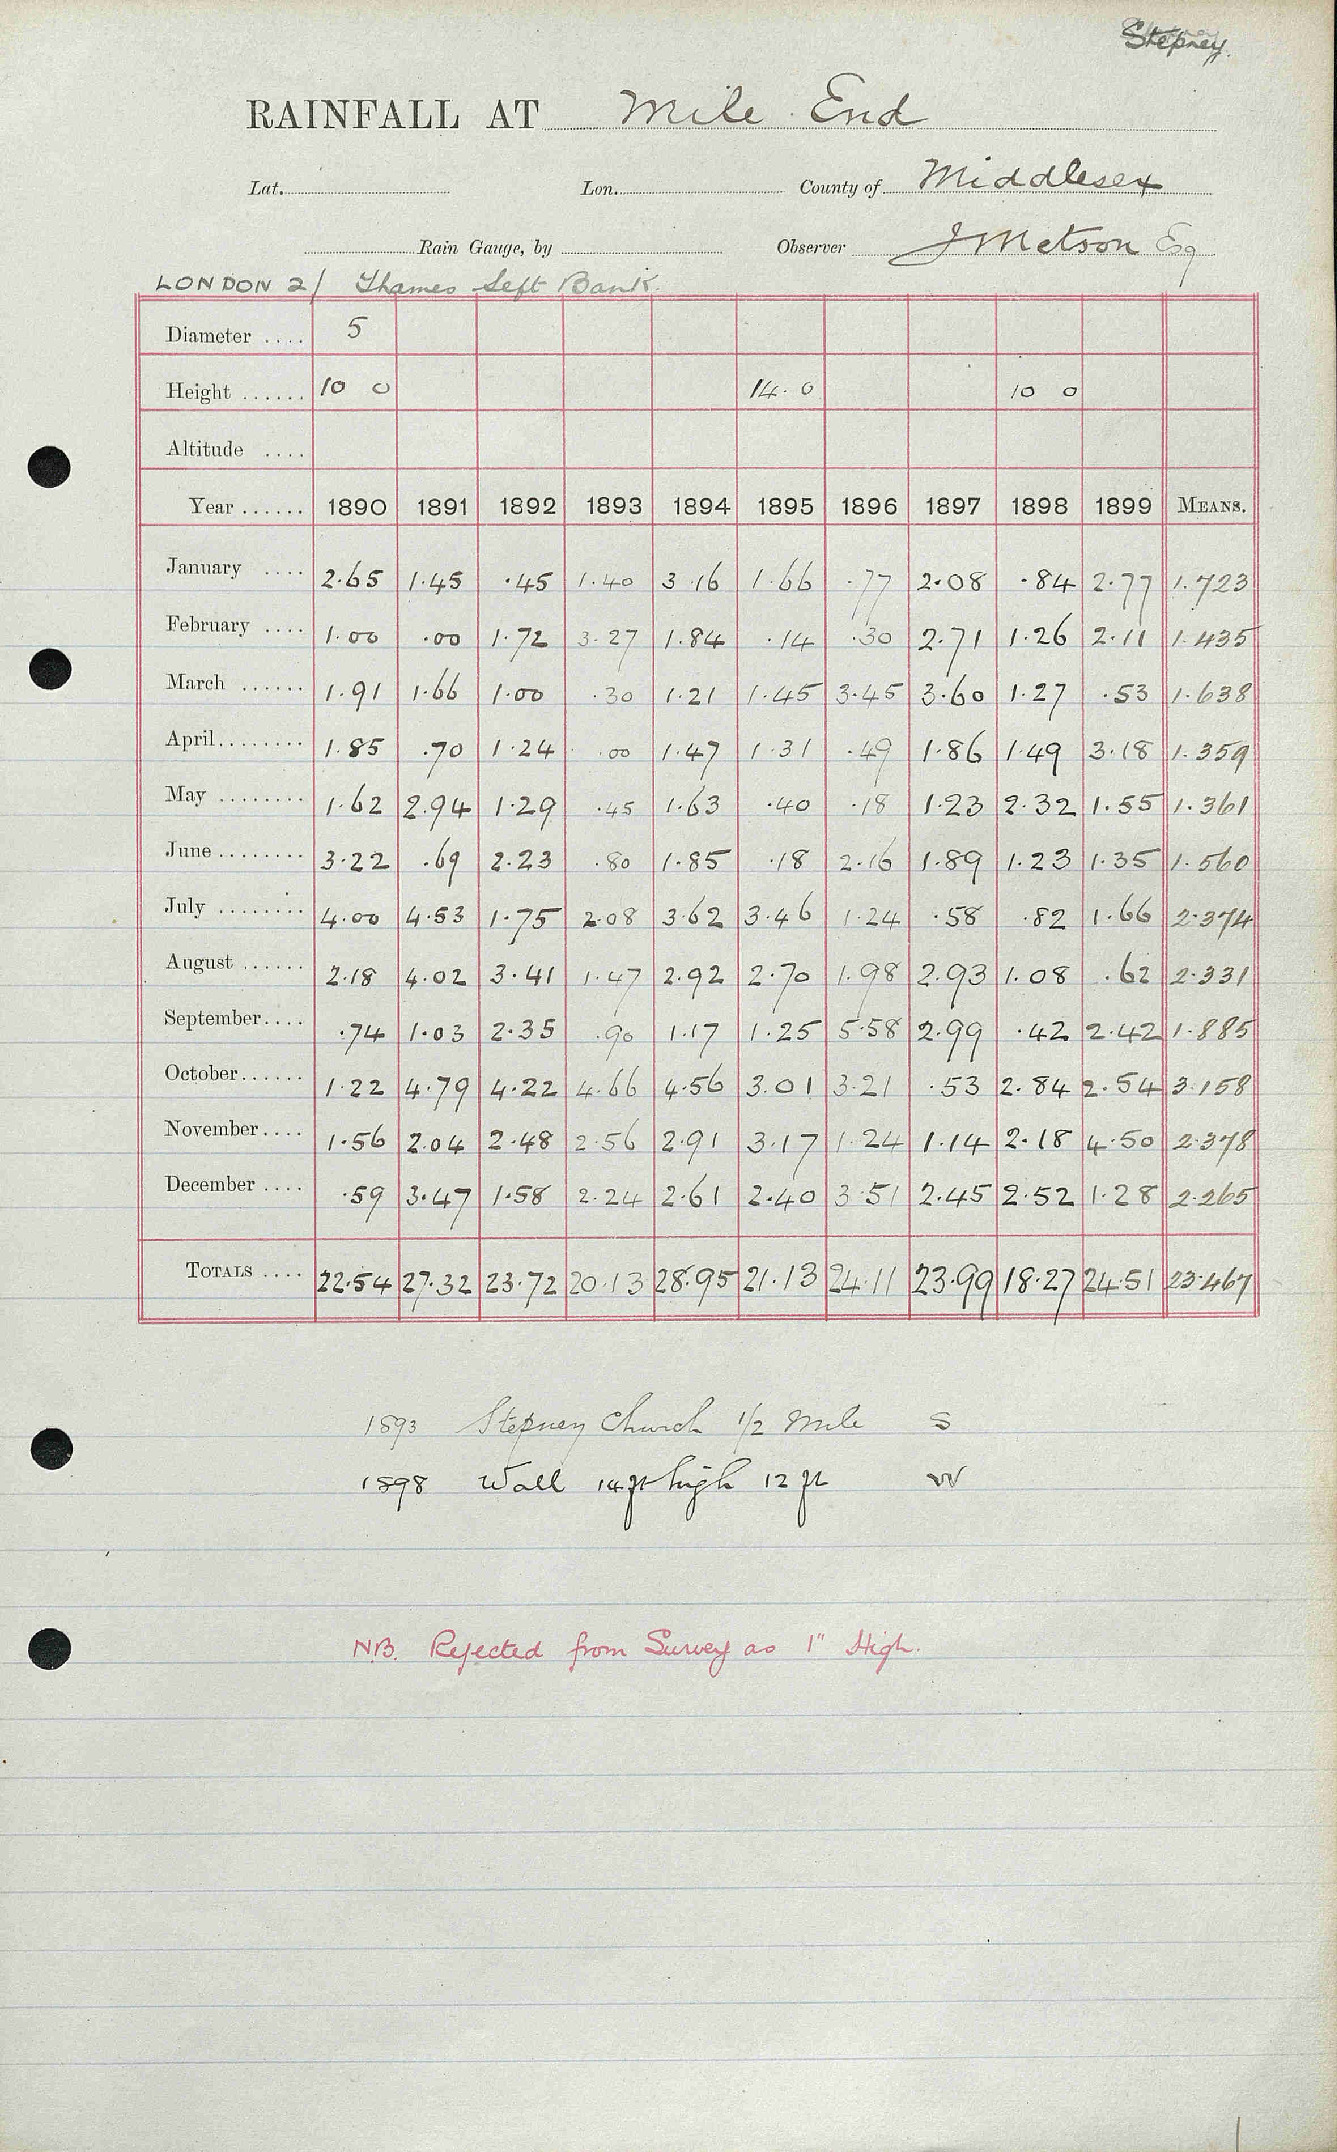 Stepney.
RAINFALL AT Mile End
Lat. Lon. County of Middlesex
Rain Gauge, by Observer J Metson Esq
LONDON 2/ Thames Left Bank.
Diameter .... 5
Height ...... 10 0 14.0 10 0
Altitude ....
Year ...... 1890 1891 1892 1893 1894 1895 1896 1897 1898 1899 MEANS.
January .... 2.65 1.45 .45 1.40 3.16 1.66 .77 2.08 .84 2.77 1.723
February .... 1.00 .00 1.72 3.27 1.84 .14 .30 2.71 1.26 2.11 1.435
March ...... 1.91 1.66 1.00 .30 1.21 1.45 3.45 3.60 1.27 .53 1.638
April........ 1.85 .70 1.24 .00 1.47 1.31 .49 1.86 1.49 3.18 1.359
May ........ 1.62 2.94 1.29 .45 1.63 .40 .18 1.23 2.32 1.55 1.361
June ........ 3.22 .69 2.23 .80 1.85 .18 2.16 1.89 1.23 1.35 1.560
July ........ 4.00 4.53 1.75 2.08 3.62 3.46 1.24 .58 .82 1.66 2.374
August ...... 2.18 4.02 3.41 1.47 2.92 2.70 1.98 2.93 1.08 .62 2.331
September.... .74 1.03 2.35 .90 1.17 1.25 5.58 2.99 .42 2.42 1.885
October...... 1.22 4.79 4.22 4.66 4.56 3.01 3.21 .53 2.84 2.54 3.158
November.... 1.56 2.04 2.48 2.56 2.91 3.17 1.24 1.14 2.18 4.50 2.378
December .... .59 3.47 1.58 2.24 2.61 2.40 3.51 2.45 2.52 1.28 2.265
TOTALS .... 22.54 27.32 23.72 20.13 28.95 21.13 24.11 23.99 18.27 24.51 23.467
1893 Stepney Church 1/2 Mile S
1898 Wall 14 ft high 12 ft W
N.B. Rejected from Survey as 1" High.